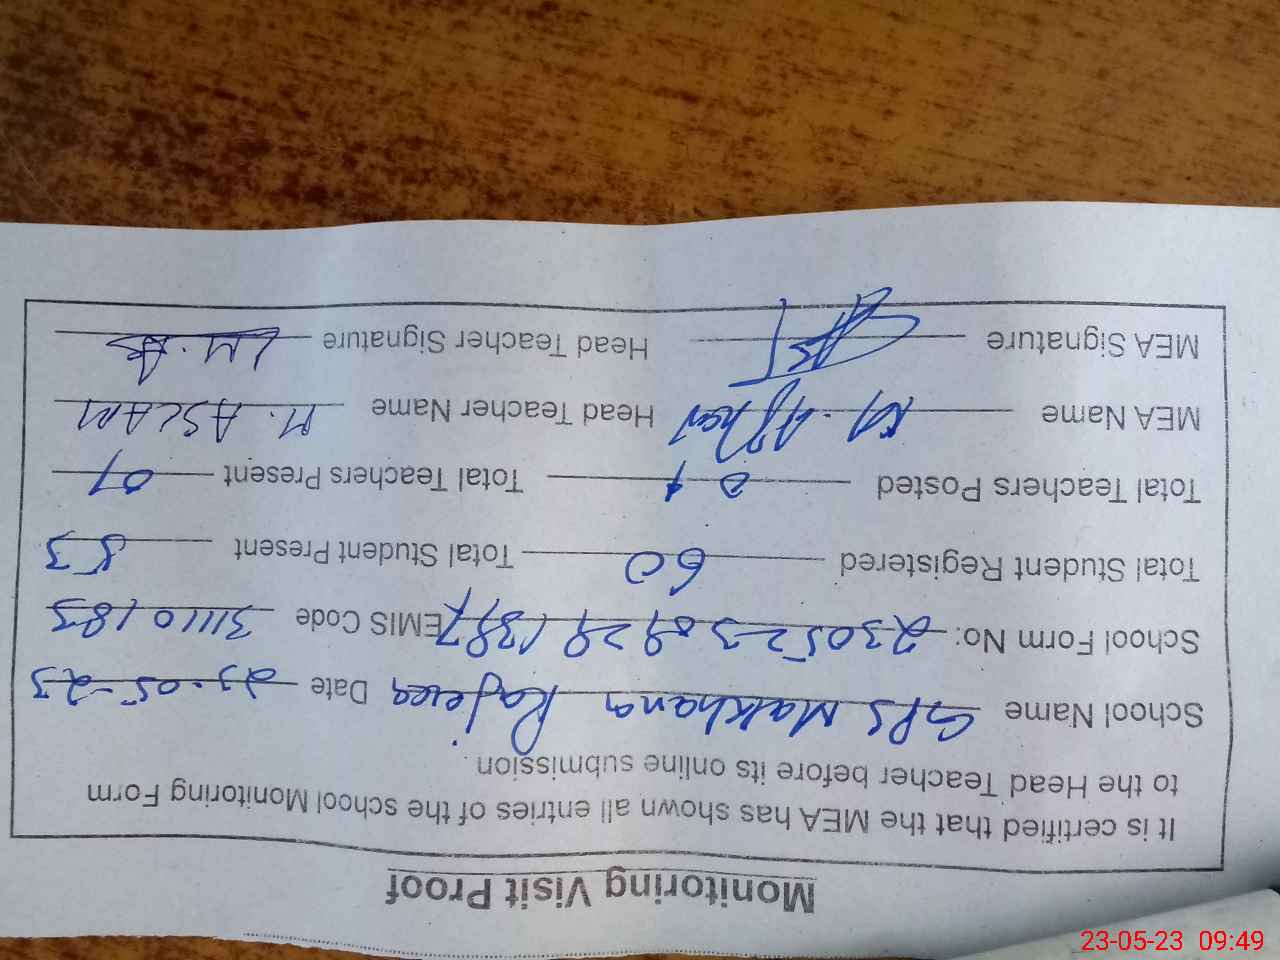 Monitoring Visit Proof
It is certified that the MEA has shown all entries of the school Monitoring Form
to the Head Teacher before its online submission.
School Name GPS Makhana Date 23-05-23
School Form No: EMIS Code 31110183
Total Student Registered 60 Total Student Present 53
Total Teachers Posted Total Teachers Present
MEA Name Head Teacher Name M. ASLAM
MEA Signature Head Teacher Signature
23-05-23 09:49